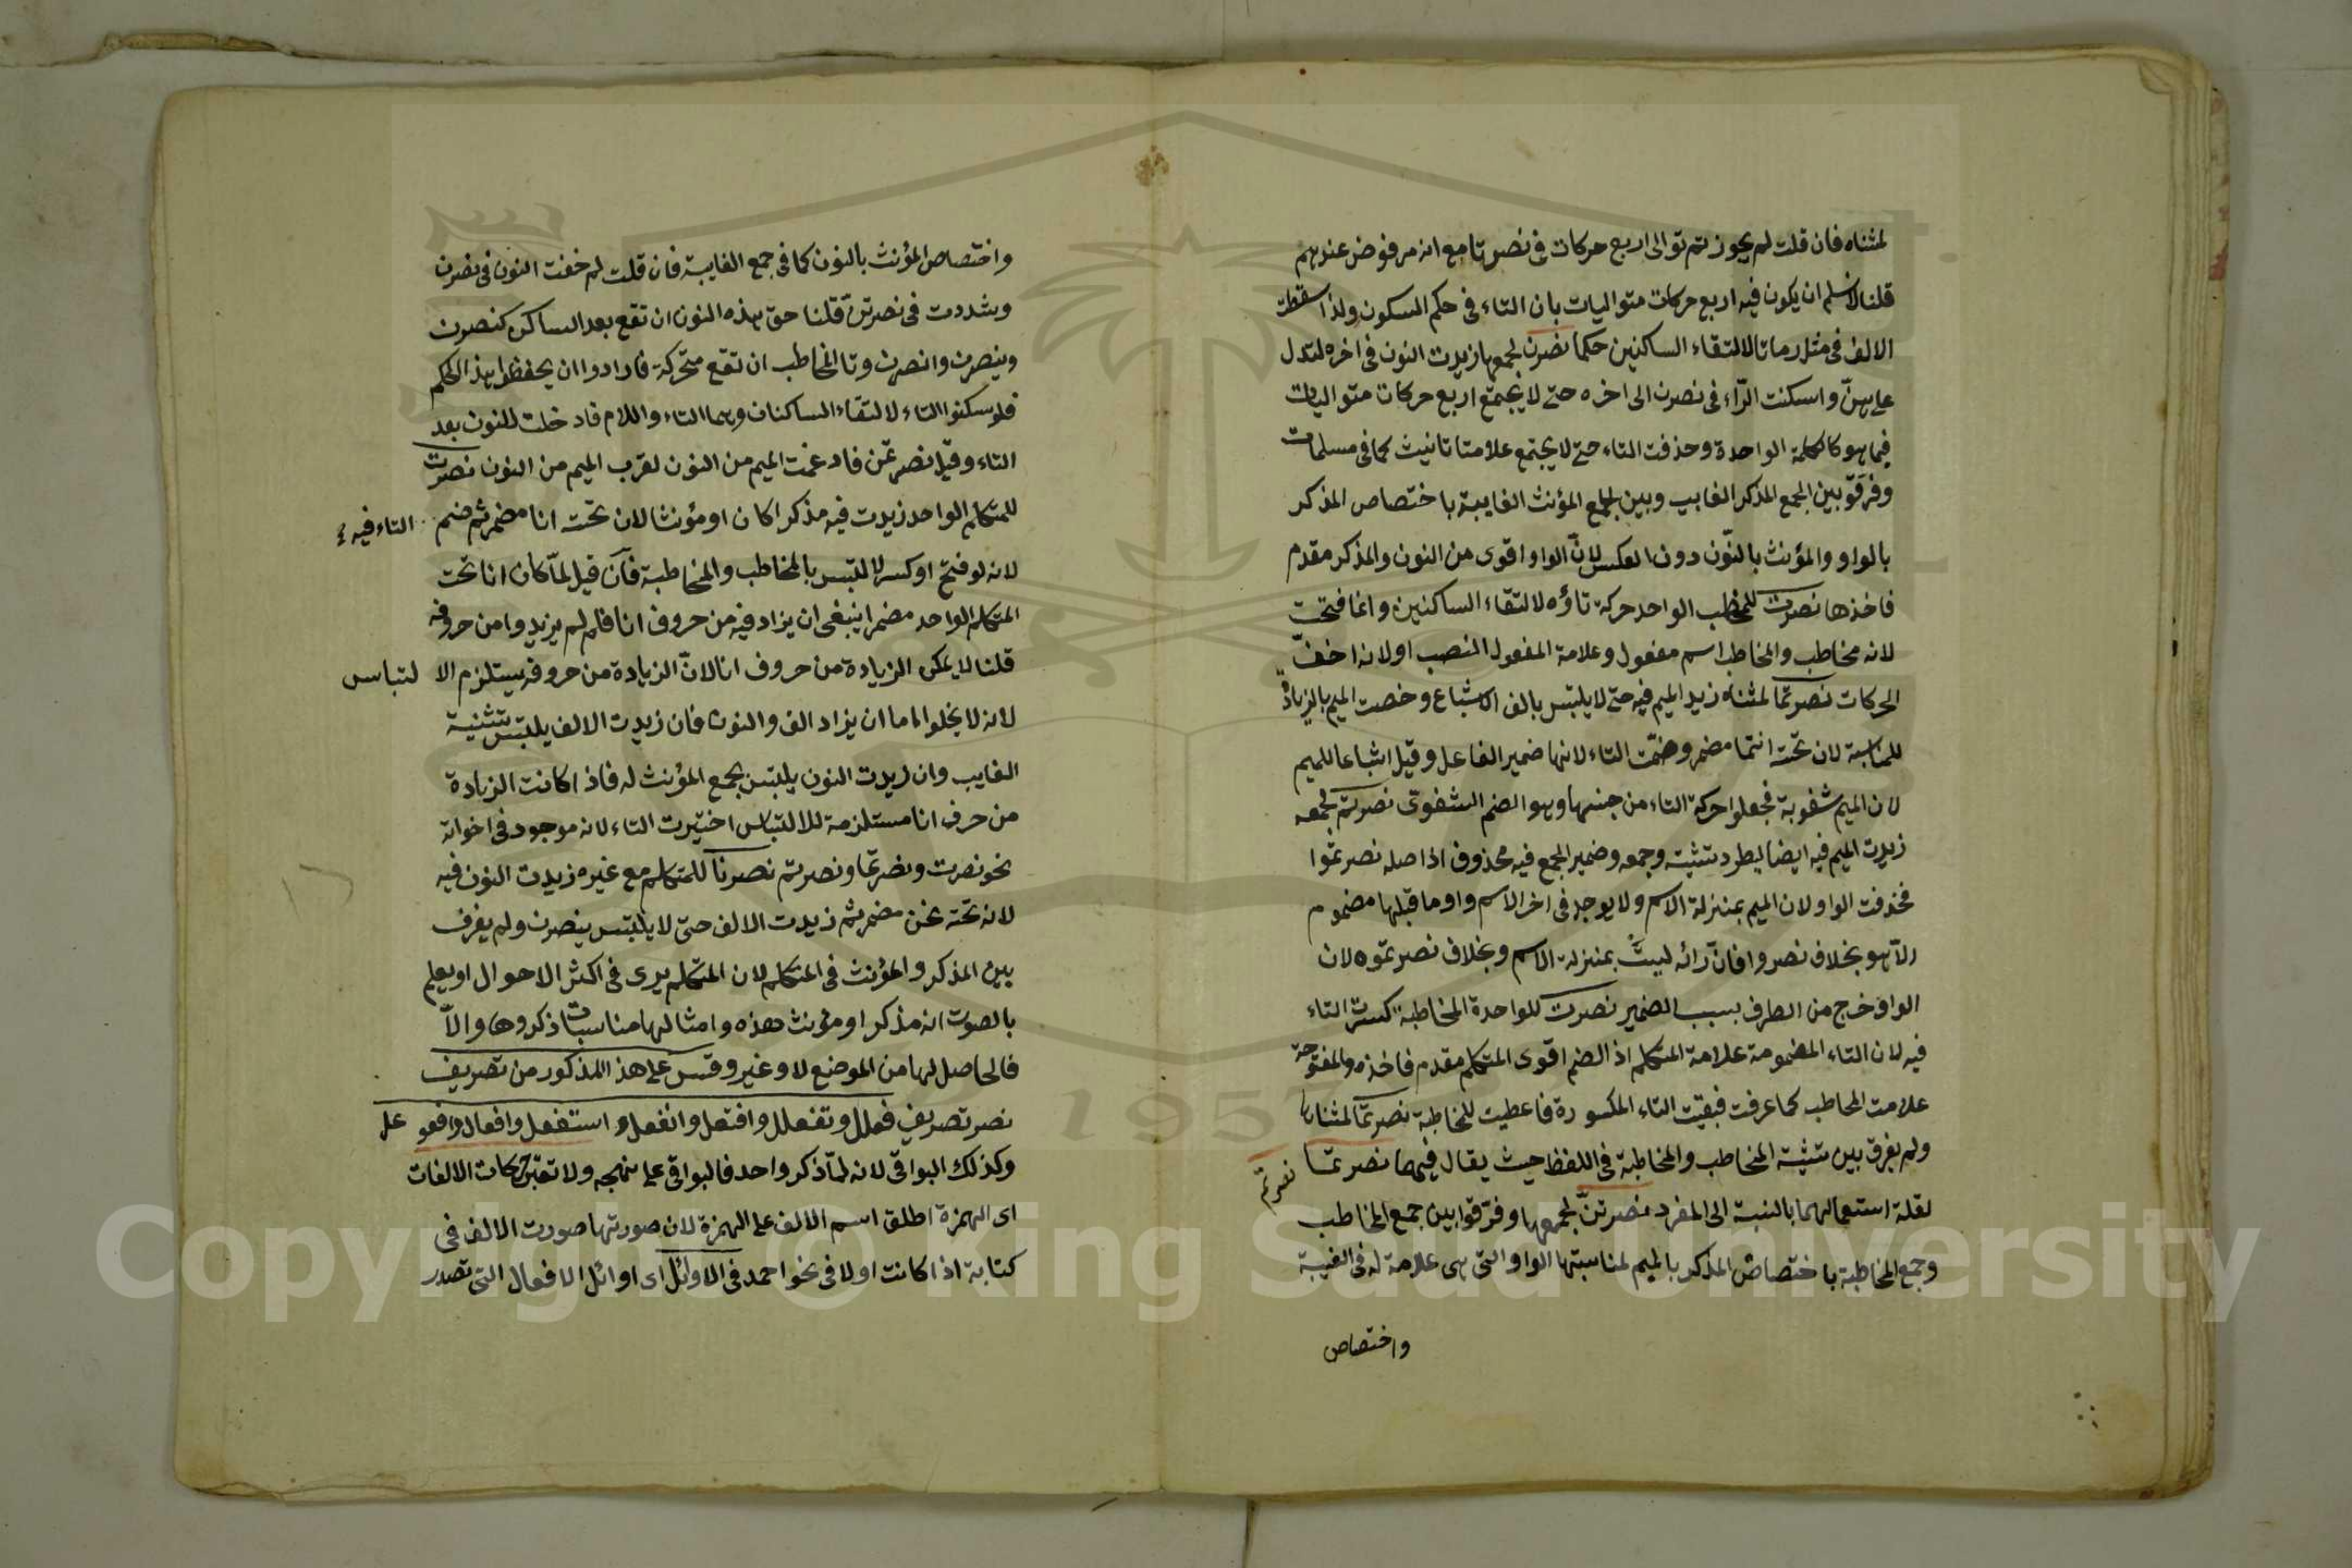 لمثناه فان قلت لم يجوزتم توالى اربع حركات فى نصرتا مع انه مرفوض عندهم
قلنا لانسلم ان يكون فيه اربع حركات متواليات بان التاء فى حكم السكون ولذا سقطت
الالف فى مثل رماتا لالتقاء الساكنين حكما نصرن لجمعها زيدت النون فى اخره لتدل
على هنّ واسكنت الرّاء فى نصرن الى اخره حتى لا يجتمع اربع حركات متواليات
فيما هو كالكلمة الواحدة وحذفت التاء حتى لا يجتمع علامتا تانيث كما فى مسلمات
وفرقوّ بين الجمع المذكر الغايب وبين الجمع المؤنث الغايبة باختصاص المذكر
بالواو والمؤنث بالنّون دون العكس لانّ الواو اقوى من النون والمذكر مقدم
فاخذها نصرت للمخاطب الواحد حركة تاؤه لالتقاء الساكنين وانما فتحت
لانه مخاطب والمخاطب اسم مفعول وعلامة المفعول النصب او لانه اخفّ
الحركات نصرتما لمثناه زيد الميم فيه حتى لا يلتبس بالف الاشباع وخصت الميم بالزيادة
للمناسبة لان تحته انتما مضمر وضمّت التاء لانها ضمير الفاعل وقيل اتباعا للميم
لان الميم شفوية فجعلوا حركة التاء من جنسها وهو الضم الشفوى نصرتم لجمعه
زيدت الميم فيه ايضا ليطرد بتثنية وجمعه وضمير الجمع فيه محذوف اذا صله نصرتموا
فحذفت الواو لان الميم بمنزلة الاسم ولا يوجد فى اخر الاسم واو ما قبلها مضموم
الاّ هو بخلاف نصروا فانّ رائه ليست بمنزلة الاسم وبخلاف نصرتموه لان
الواو خرج من الطرف بسبب الضمير نصرت للواحدة المخاطبة كسرت التاء
فيه لان التاء المضمومة علامة المتكلم اذ الضم اقوى المتكلم مقدم فاخذه والمفتوحة
علامت المخاطب كما عرفت فبقيت التاء المكسورة فاعطيت للمخاطبة نصرتما لمثناها
ولم يفرق بين تثنية المخاطب والمخاطبة فى اللفظ حيث يقال فيهما نصرتما
نصرتم
لقلة استعمالهما بالنسبة الى المفرد نصرتنّ لجمعها وفرّقوا بين جمع المخاطب
وجمع المخاطبة باختصاص المذكر بالميم لمناسبتها الواو التى هى علامة له فى الغيبة
واختصاص
واختصاص المؤنث بالنون كما فى جمع الغايبة فان قلت لم خفت النون فى نصرن
وشددت فى نصرتنّ قلنا حق هذه النون ان تقع بعد الساكن كنصرن
وينصرن وانصرن وتا المخاطب ان تقع متحركة فارادوا ان يحفظوا هذا الحكم
فلو سكنوا التاء لالتقاء الساكنان وهما التاء واللام فادخلت للنون بعد
التاء وقيل نصرتمن فادغمت الميم من النون لقرب الميم من النون نصرت
للمتكلم الواحد زيدت فيه مذكرا كان او مؤنثا لان تحته انا مضمر ثم ضم التاء فيه
لانه لو فتح او كسر لالتبس بالمخاطب والمخاطبة فان قيل لمّا كان انا تحت
المتكلم الواحد مضمرا ينبغى ان يزاد فيه من حروف انا فلم لم يزيدوا من حروفه
قلنا لا يمكن الزيادة من حروف انا لانّ الزيادة من حروفه يستلزم الا لتباس
لانه لا يخلوا اما ان يزاد الف والنون فان زيدت الالف يلتبس بتثنية
الغايب وان زيدت النون يلتبس بجمع المؤنث له فاذا كانت الزيادة
من حرف انا مستلزمة للالتباس اختيرت التاء لانه موجود فى اخواته
نحو نصرت ونصرتما ونصرتم نصرنا للمتكلم مع غيره زيدت النون فيه
لانه تحته نحن مضمر ثم زيدت الالف حتى لا يلتبس بنصرن ولم يفرق
بين المذكر والمؤنث فى المتكلم لان المتكلم يرى فى اكثر الاحوال او يعلم
بالصوت انه مذكر او مؤنث هذه وامثالها مناسبات ذكروها والاّ
فالحاصل لها من الموضع لا وغير وقس على هذ المذكور من تصريف
نصر تصريف فعلل وتفعلل وافتعل وانفعل و استفعل وافعال وافعو عل
وكذلك البواقى لانه لمّا ذكر واحد فالبواقى على نهجه ولا تعتبر حركات الالفات
اى الهمزة اطلق اسم الالف على الهمزة لان صورتها صورت الالف فى
كتابة اذا كانت اولا فى نحو احمد فى الاوائل اى اوائل الافعال التى تصدر
Copyright © King Saud University
1957